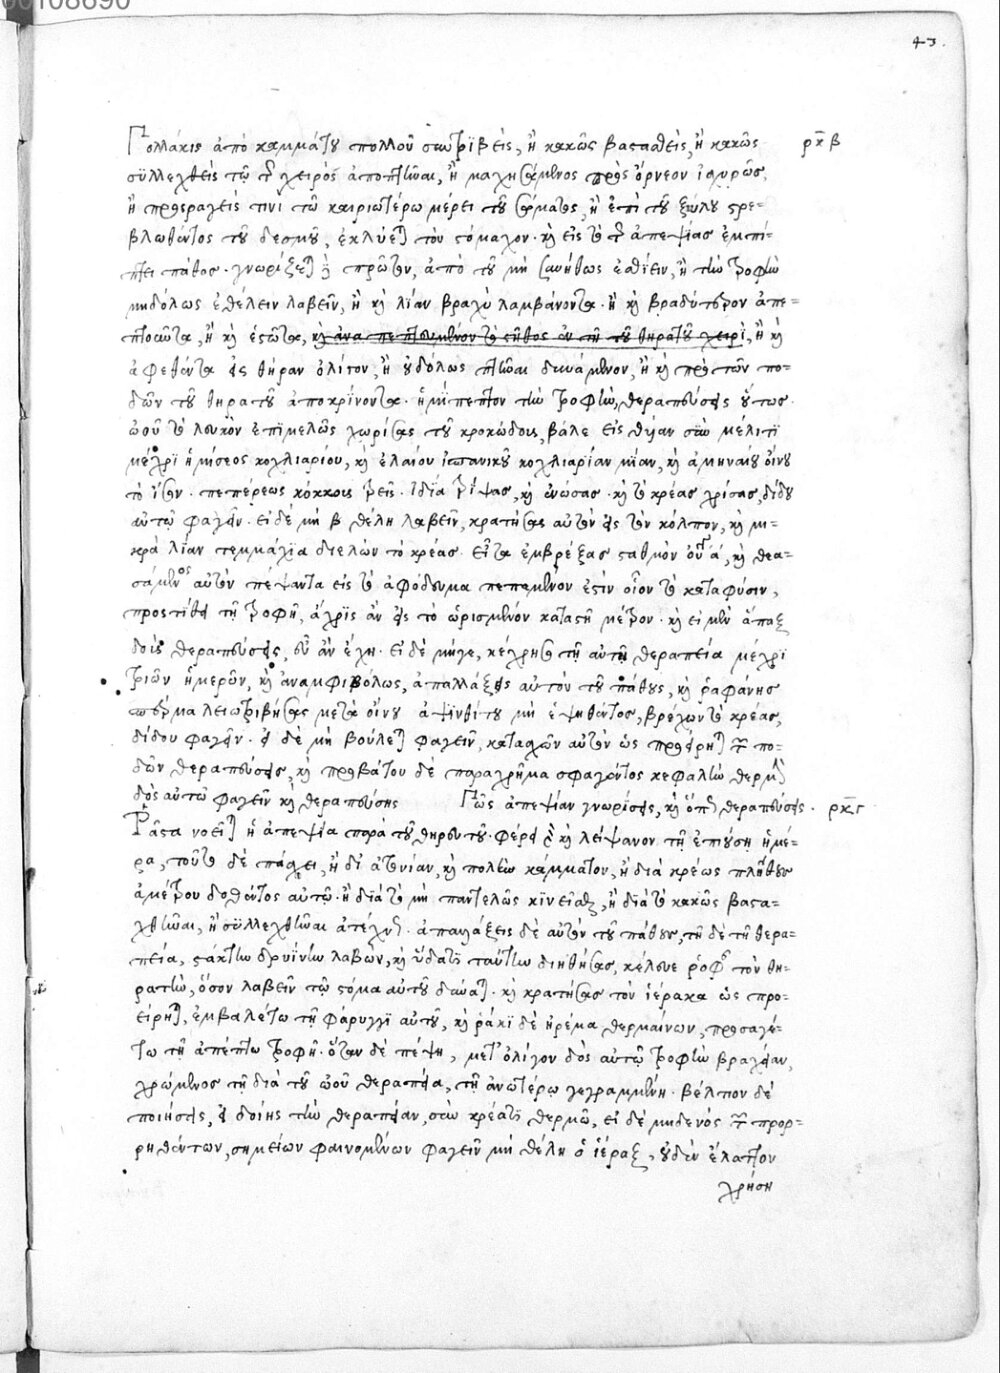 00108690
43.
Πολλάκις ἀπὸ καμμάτου πολλοῦ συντριβεὶς, ἢ κακῶς βασταθεὶς, ἢ κακῶς ρκβ
συλλεχθεὶς τῷ τῆς χειρὸς ἀποπτῆναι, ἢ μαχησάμενος πρὸς ὄρνεον ἰσχυρῶς,
ἢ προσραγείς τινι τῶ καιριωτέρω μέρει τοῦ σώματος, ἢ ἐπὶ τοῦ ξύλου στρε-
βλωθέντος τοῦ δεσμοῦ, ἐκλύεται τὸν στόμαχον· καὶ εἰς τὸ τῆς ἀπεψίας ἐμπί-
πτει πάθος· γνωρίζεται πρῶτον, ἀπὸ τοῦ μὴ συνήθως ἐσθίειν, ἢ τὴν τροφὴν
μηδόλως ἐθέλειν λαβεῖν, ἢ καὶ λίαν βραχὺ λαμβάνοντα· ἢ καὶ βραδύτερον ἀπε-
πτοῦντα, ἢ καὶ ἑστῶτα, καὶ ἀναπεπταμένον τὸ στῆθος ἐν τῇ τοῦ θηρατοῦ χειρὶ, ἢ καὶ
ἀφεθέντα εἰς θήραν ὀλίγον, ἢ οὐδόλως πτῆναι δυνάμενον, ἢ καὶ πρὸ τῶν πο-
δῶν τοῦ θηρατοῦ ἀποκρίνοντα· ἡμίπεπτον τὴν τροφὴν, θεραπεύσεις οὕτως·
ὠοῦ τὸ λευκὸν ἐπιμελῶς χωρίσας τοῦ κροκώδους, βάλε εἰς θυίαν σὺν μέλιτι
μέχρι ἡμίσεος κοχλιαρίου, καὶ ἐλαίου ἱσπανικοῦ κοχλιαρίαν μίαν, καὶ ἀμηναίου οἴνου
τὸ ἴσον· πεπέρεως κόκκους τρεῖς· ἰδία τρίψας, καὶ ἑνώσας· καὶ τὸ κρέας χρίσας, δίδου
αὐτῷ φαγεῖν· εἰ δὲ μὴ θέλῃ λαβεῖν, κρατήσας αὐτὸν εἰς τὸν κόλπον, καὶ μι-
κρὰ λίαν τεμμάχια διελὼν τὸ κρέας· εἶτα ἐμβρέξας σταθμὸν α, καὶ θεα-
σάμενος αὐτὸν πέψαντα εἰς τὸ ἀφόδευμα πεπεμμένον ἐστὶν οἷον τὸ κατὰ φύσιν,
προστίθει τῇ τροφῇ, ἄχρις ἂν εἰς τὸ ὡρισμένον καταστῇ μέτρον· καὶ εἰ μὲν ἅπαξ
δοὺς θεραπεύσεις, εὖ ἂν ἔχῃ· εἰ δὲ μήγε, κέχρησο τῇ αὐτῇ θεραπεία μέχρι
τριῶν ἡμερῶν, καὶ ἀναμφιβόλως, ἀπαλλάξεις αὐτὸν τοῦ πάθους, καὶ ῥαφάνης
σπέρμα λειοτριβήσας μετὰ οἴνου ἀψινθίτου μὴ ἑψηθέντος, βρέχων τὸ κρέας,
δίδου φαγεῖν· εἰ δὲ μὴ βούλεται φαγεῖν, κατασχὼν αὐτὸν ὡς προείρηται τῶν πο-
δῶν θεραπεύσεις, καὶ προβάτου δὲ παραχρῆμα σφαγέντος κεφαλὴν θερμὴν
δὸς αὐτῶ φαγεῖν καὶ θεραπεύσης Πῶς ἀπεψίαν γνωρίσεις, καὶ ὅπως θεραπεύσεις. ρκγ
Ῥᾶστα νοεῖται ἡ ἀπεψία παρὰ τοῦ θηρευτοῦ· φέρει γὰρ καὶ λείψανον τῇ ἐπιούσῃ ἡμέ-
ρα, τοῦτο δὲ πάσχει, ἢ δι' ἀτονίαν, καὶ πολὺν κάμματον, ἢ διὰ κρέως πλῆθος
ἀμέτρου δοθέντος αὐτῷ· ἢ διὰ τὸ μὴ παντελῶς κινεῖσθαι, ἢ διὰ τὸ κακῶς βαστα-
χθῆναι, ἢ συλλεχθῆναι ἀτέχνως· ἀπαλλάξεις δὲ αὐτὸν τοῦ πάθους, τῇ δε τῇ θερα-
πεία, στάκτην δρυΐνην λαβὼν, καὶ ὕδατι ταύτην διηθήσας, κέλευε ῥοφεῖν τὸν θη-
ρατὴν, ὅσον λαβεῖν τῷ στόμα αὐτοῦ δύναται· καὶ κρατήσας τὸν ἱέρακα ὡς προ-
είρηται, ἐμβαλέτω τῇ φάρυγγι αὐτοῦ, καὶ ῥάκι δὲ ἠρέμα θερμαίνων, προσαγέ-
τω τῇ ἀπέπτω τροφῇ· ὅταν δὲ πέψῃ, μετ' ὀλίγον δὸς αὐτῷ τροφὴν βραχεῖαν,
χρώμενος τῇ διὰ τοῦ ὠοῦ θεραπεία, τῇ ἀνωτέρω γεγραμμένῃ· βέλτιον δὲ
ποιήσεις, εἰ δοίης τὴν θεραπείαν, σὺν κρέατι θερμῶ, εἰ δὲ μηδενὸς τῶν προρ-
ρηθέντων, σημείων φαινομένων φαγεῖν μὴ θέλῃ ὁ ἱέραξ, οὐδὲν ἔλαττον
χρήση